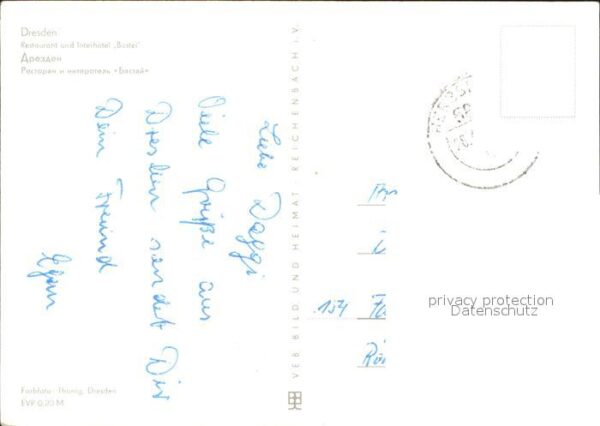 Dresden
Restaurant und Interhotel „Bastei"
Дрезден
Ресторан и интеротель «Бастай»
Liebe Daggi
Viele Grüße aus
Dresden sendet Dir
Dein Freund
Egon
VEB BILD UND HEIMAT REICHENBACH i.V.
154
privacy protection
Datenschutz
Farbfoto: Thonig, Dresden
EVP 0,20 M